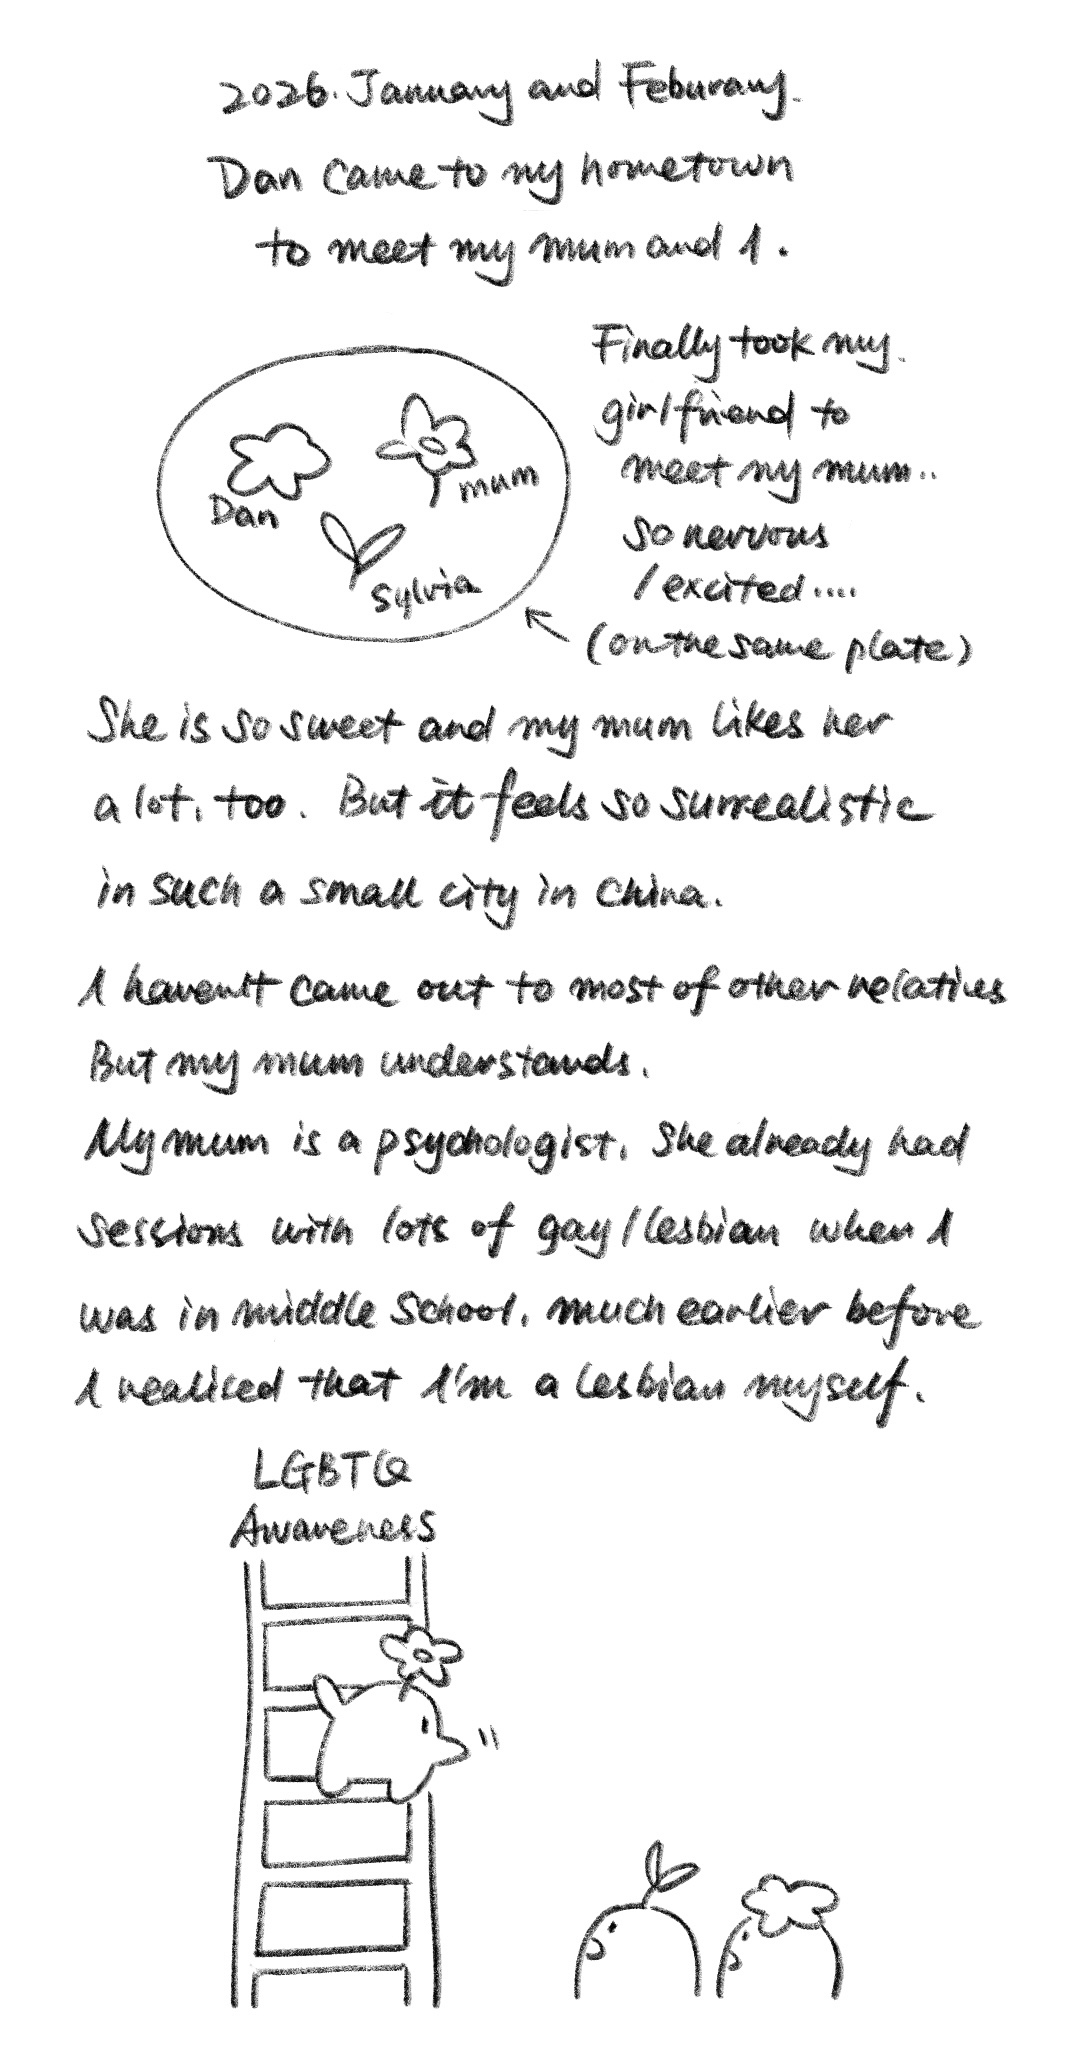 2026. January and Feburary.
Dan came to my hometown
to meet my mum and I.
Finally took my
girlfriend to
meet my mum..
so nervous
/excited....
(on the same plate)
Dan
mum
Sylvia
She is so sweet and my mum likes her
a lot, too. But it feels so surrealistic
in such a small city in China.
I haven't came out to most of other relatives
But my mum understands.
My mum is a psychologist. She already had
sessions with lots of gay/lesbian when I
was in middle school, much earlier before
I realised that I'm a lesbian myself.
LGBTQ
Awareness